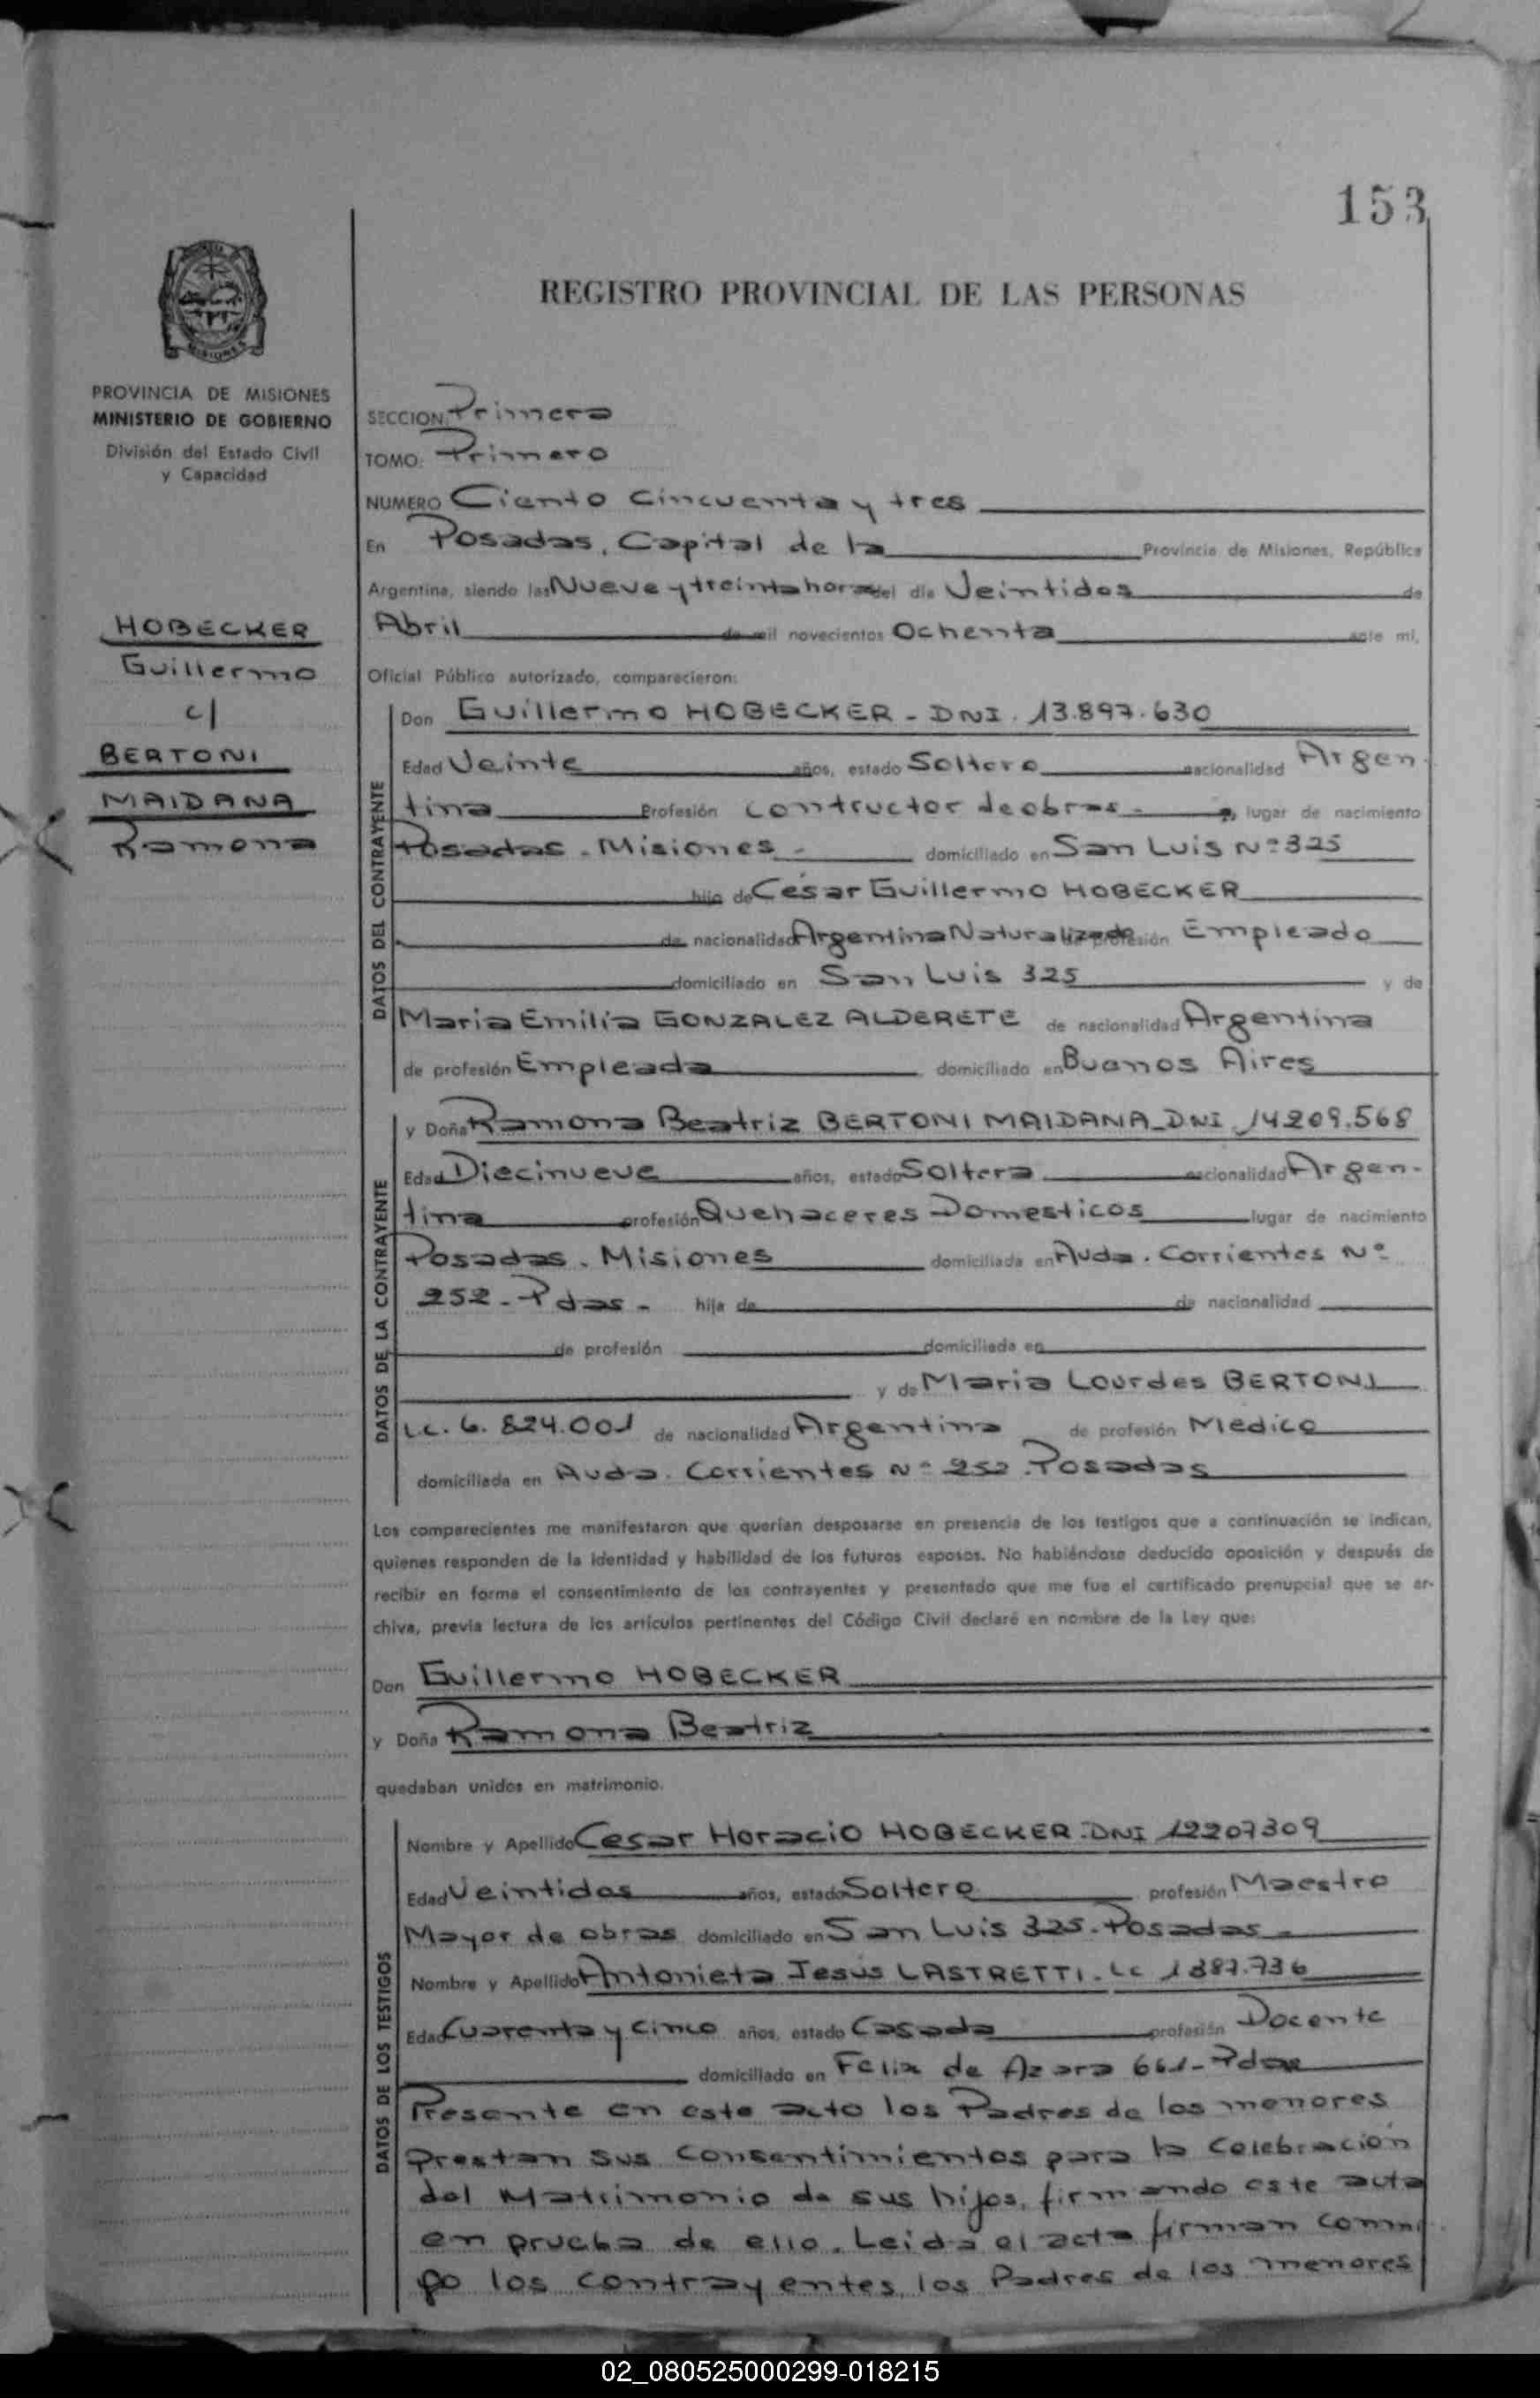 153
REGISTRO PROVINCIAL DE LAS PERSONAS
MISIONES
PROVINCIA DE MISIONES
MINISTERIO DE GOBIERNO
División del Estado Civil
y Capacidad
HOBECKER
Guillermo
c/
BERTONI
MAIDANA
Ramona
SECCION: Primera
TOMO: Primero
NUMERO Ciento Cincuenta y tres
En Posadas, Capital de la Provincia de Misiones, República
Argentina, siendo las Nueve y treinta horas del día Veintidos de
Abril de mil novecientos Ochenta ante mí,
Oficial Público autorizado, comparecieron:
DATOS DEL CONTRAYENTE
Don Guillermo HOBECKER - DNI. 13.897.630
Edad Veinte años, estado Soltero nacionalidad Argen-
tina Profesión Contructor de obras - lugar de nacimiento
Posadas - Misiones - domiciliado en San Luis Nº 325
hijo de César Guillermo HOBECKER
de nacionalidad Argentina Naturalizado de profesión Empleado
domiciliado en San Luis 325 y de
Maria Emilia GONZALEZ ALDERETE de nacionalidad Argentina
de profesión Empleada domiciliado en Buenos Aires
DATOS DE LA CONTRAYENTE
y Doña Ramona Beatriz BERTONI MAIDANA - DNI. 14209.568
Edad Diecinueve años, estado Soltera nacionalidad Argen-
tina profesión Quehaceres Domesticos lugar de nacimiento
Posadas - Misiones domiciliada en Avda. Corrientes Nº
252 - Pdas - hija de de nacionalidad
de profesión domiciliado en
y de Maria Lourdes BERTONI
L.C. 6.824.001 de nacionalidad Argentina de profesión Medico
domiciliada en Avda. Corrientes Nº 252. Posadas
Los comparecientes me manifestaron que querían desposarse en presencia de los testigos que a continuación se indican,
quienes responden de la identidad y habilidad de los futuros esposos. No habiéndose deducido oposición y después de
recibir en forma el consentimiento de los contrayentes y presentado que me fue el certificado prenupcial que se ar-
chiva, previa lectura de los artículos pertinentes del Código Civil declaré en nombre de la Ley que:
Don Guillermo HOBECKER
y Doña Ramona Beatriz
quedaban unidos en matrimonio.
DATOS DE LOS TESTIGOS
Nombre y Apellido Cesar Horacio HOBECKER - DNI 12207309
Edad Veintidos años, estado Soltero profesión Maestro
Mayor de obras domiciliado en San Luis 325 - Posadas -
Nombre y Apellido Antonieta Jesús LASTRETTI - LC 1887.736
Edad Cuarenta y Cinco años, estado Casada profesión Docente
domiciliado en Felix de Azara 661 - Pdas
Presente en este acto los Padres de los menores
Prestan sus consentimientos para la Celebración
del Matrimonio de sus hijos, firmando este acta
en prueba de ello. Leida el acta firman conmi
go los contrayentes, los Padres de los menores
02_080525000299-018215